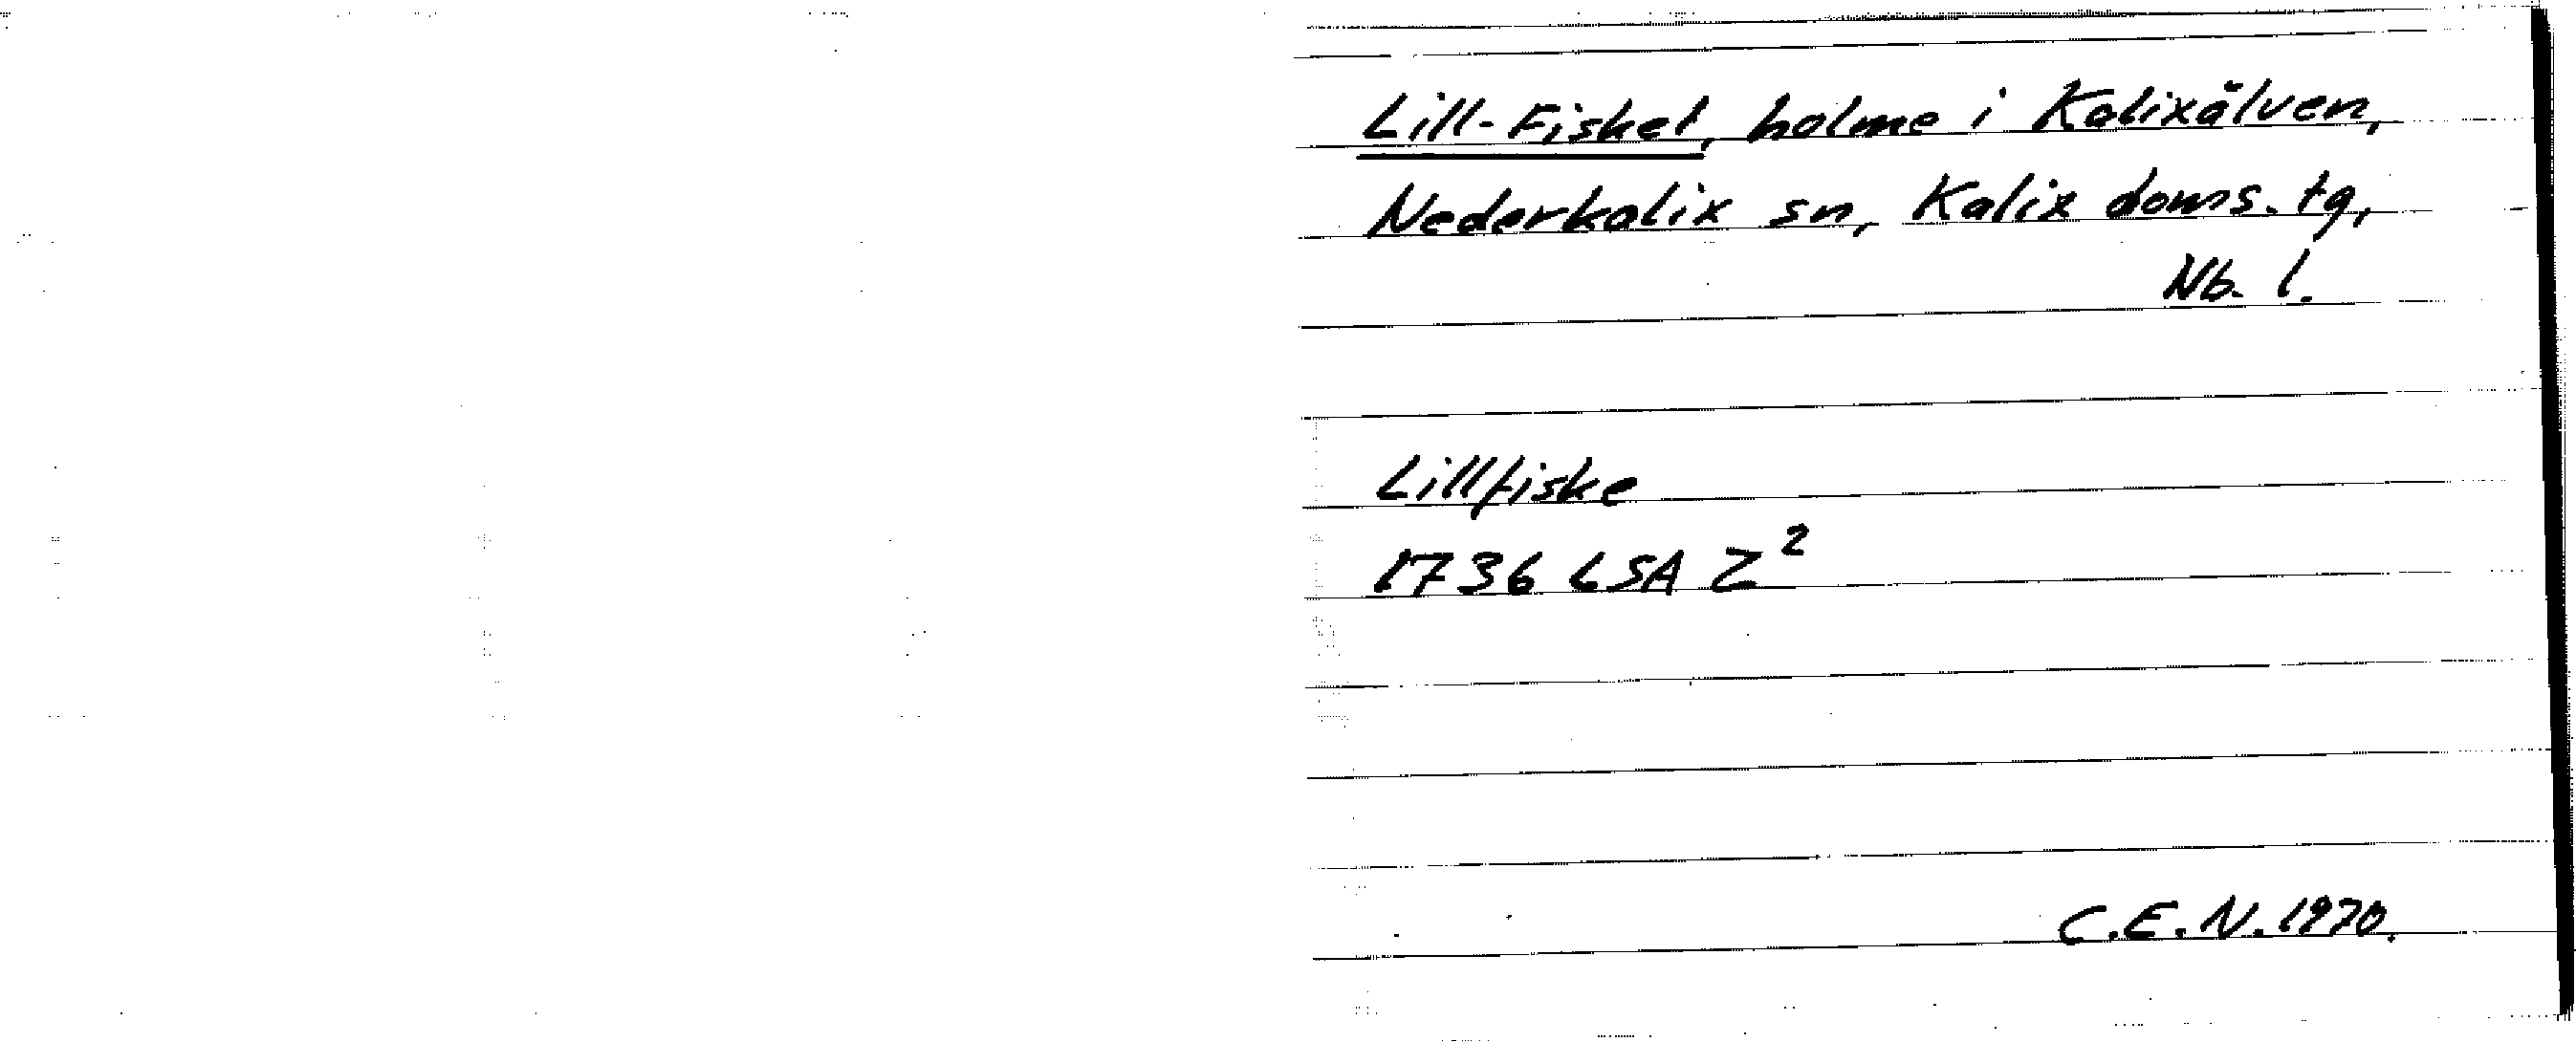 Lill-Fisket, holme i Kalixälven,
Nederkalix sn, Kalix doms. tg,
Nb. l.
Lillfiske
1736 LSA Z²
C.E.N. 1970.